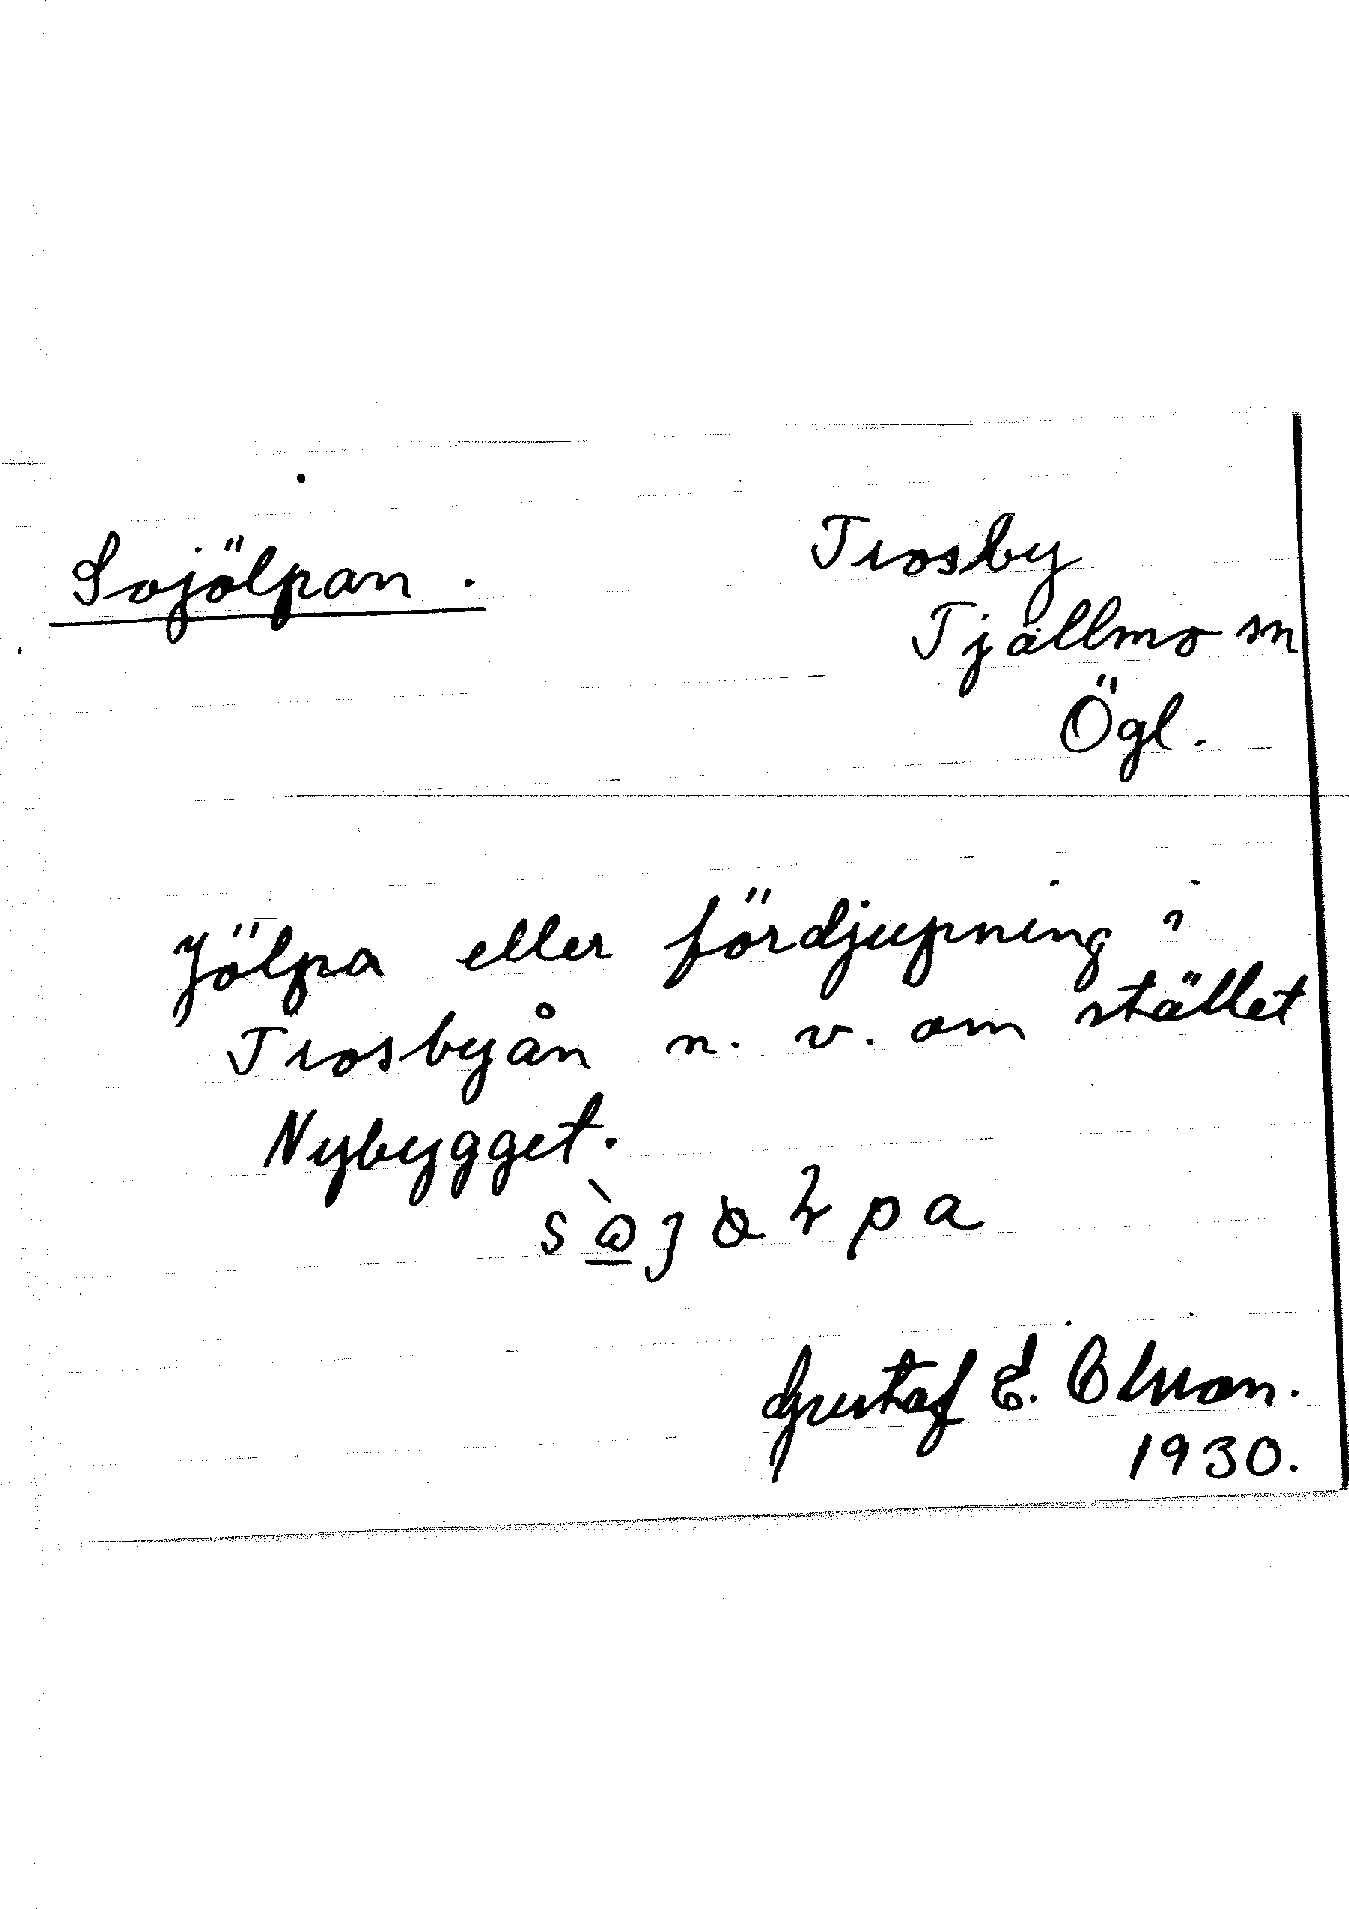 Sojölpan.
Trosby
Tjällmo sn
Ögl.
Jölpa eller fördjupning i
Trosbyån n. v. om stället
Nybygget.
Gustaf E. Olsson.
1930.